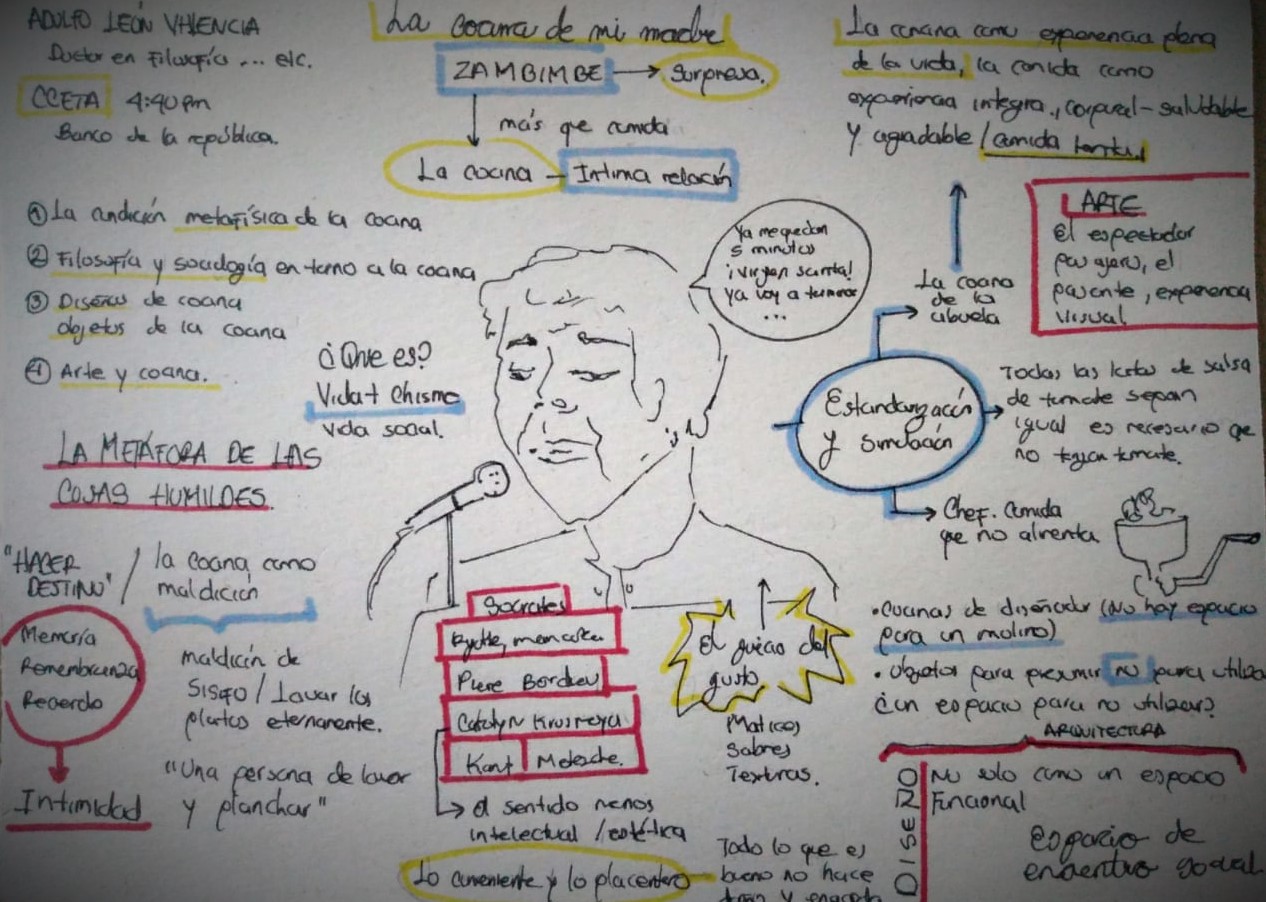 ADOLFO LEÓN VALENCIA
Doctor en Filosofía ... etc.
CCETA 4:40 pm
Banco de la república.
La cocina de mi madre
ZAMBIMBE
Sorpresa.
más que comida
La cocina - Intima relación
La cocina como experiencia plena
de la vida, la comida como
experiencia integra, corporal - saludable
y agradable / comida
ARTE
El espectador
pasajero, el
paciente, experiencia
visual
① La condición metafísica de la cocina
② Filosofía y sociología en torno a la cocina
③ Diseños de cocina
objetos de la cocina
④ Arte y cocina.
¿Que es?
Vida + Chisme
vida social.
LA METÁFORA DE LAS
COSAS HUMILDES.
Ya me quedan
5 minutos
¡Virgen santa!
ya voy a terminar
...
La cocina
de la
abuela
Estandarización
y simulación
Todas las latas de salsa
de tomate sepan
igual es necesario que
no tengan tomate.
Chef. comida
que no alimenta
"HACER
DESTINO" /
la cocina como
maldición
Memoria
Remembranza
Recuerdo
Intimidad
maldición de
Sisifo / Lavar los
platos eternamente.
"Una persona de lavar
y planchar"
Socrates
Piere Bordieu
Kant
el sentido menos
intelectual / estética
Lo conveniente y lo placentero
El juicio del
gusto
Matices
Sabores
Texturas.
Todo lo que es
bueno no hace
• Cocinas de diseñador (No hay espacio
para un molino)
• Objetos para presumir no para utilizar
¿un espacio para no utilizar?
ARQUITECTURA
DISEÑO
No solo como un espacio
Funcional
Espacio de
encuentro social